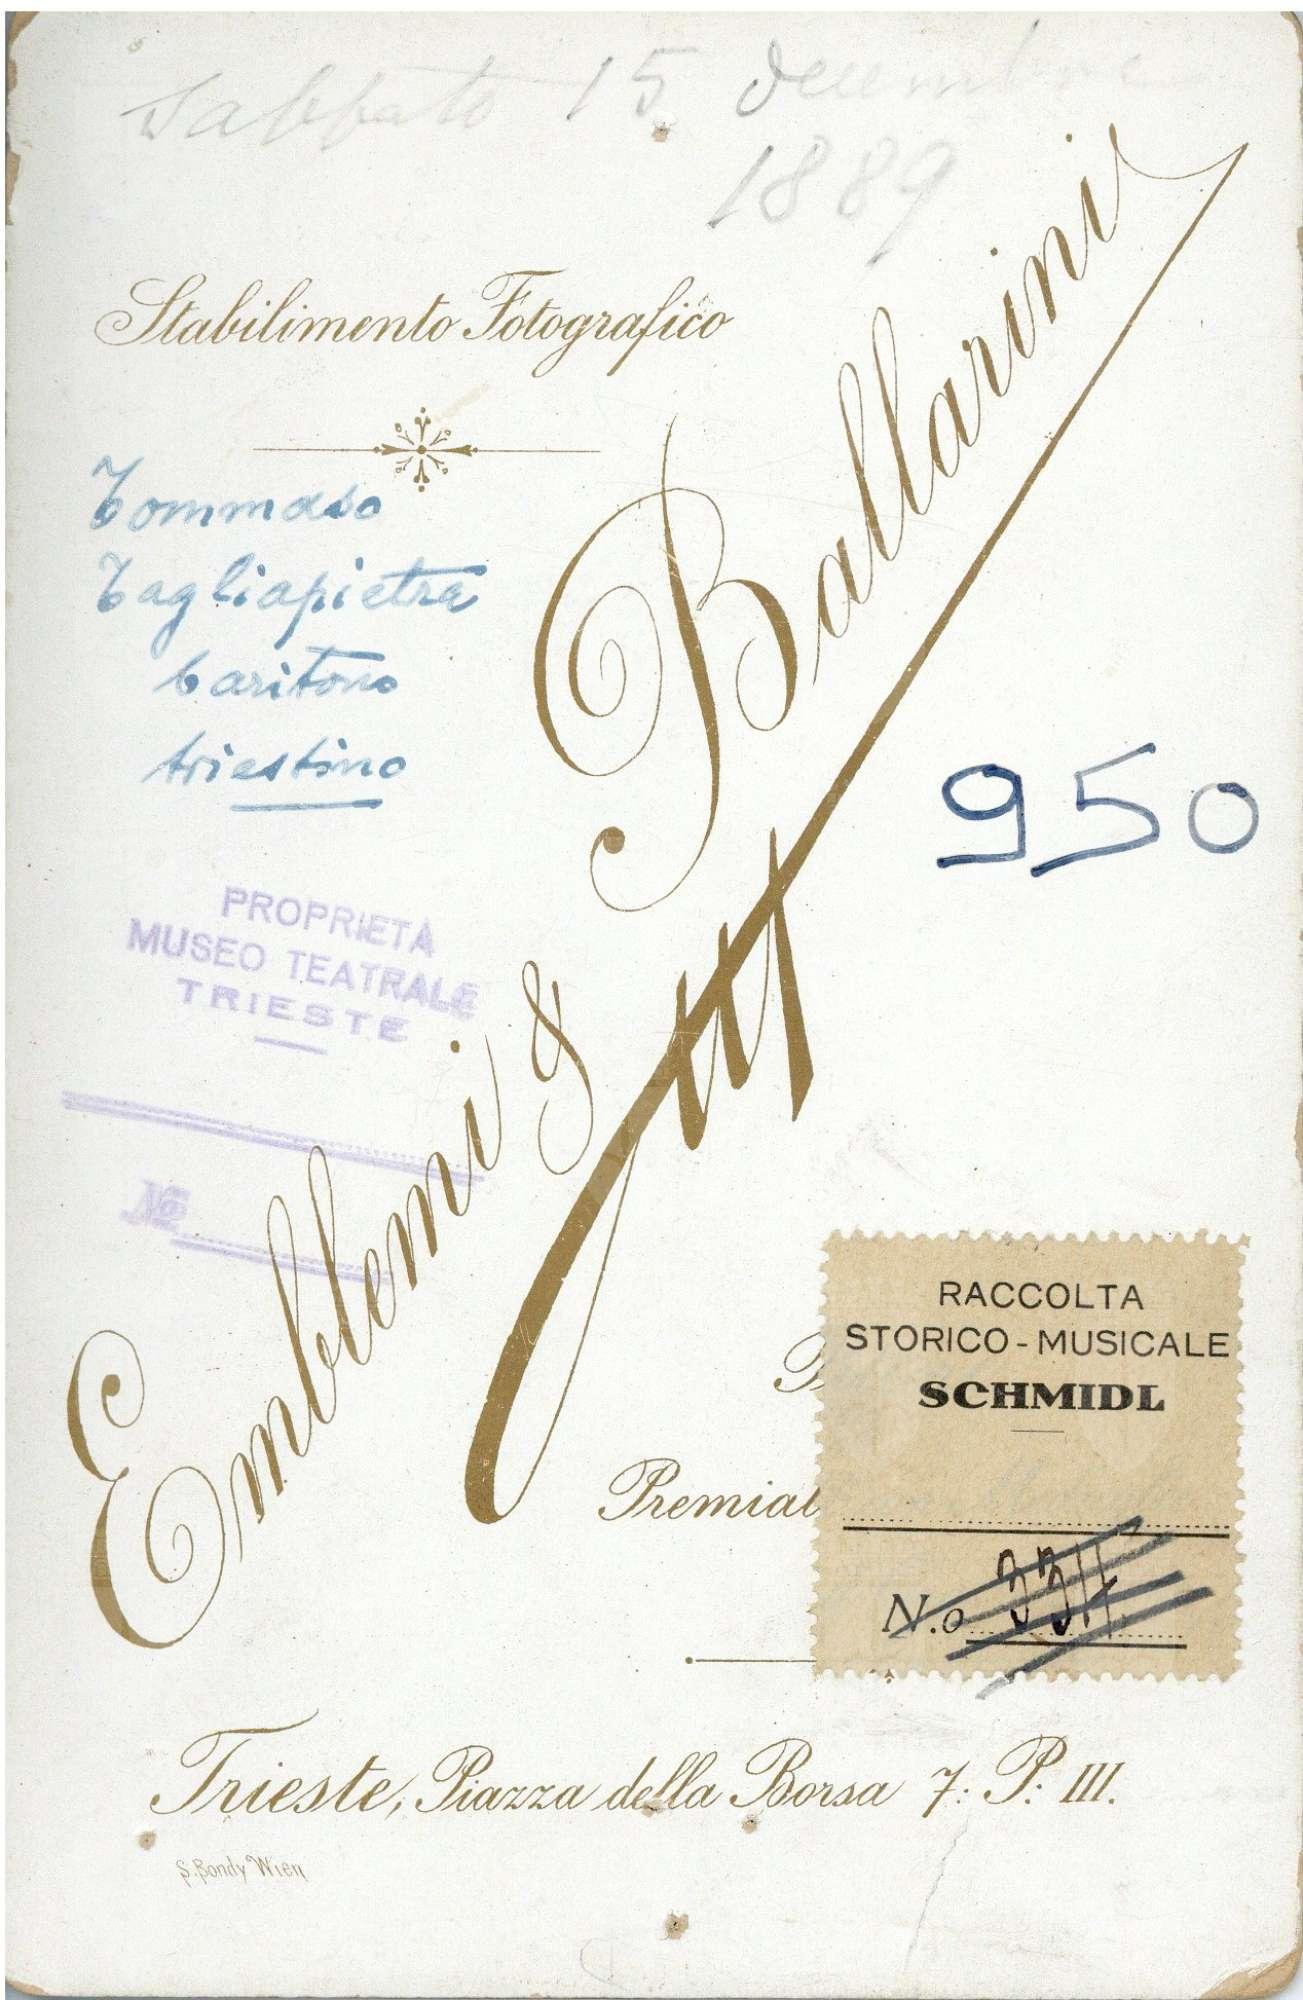 Sabbato 15 decembre
1889
Stabilimento Fotografico
Tommaso
Tagliapietra
baritono
triestino
Emblemi & Ballarini
950
PROPRIETÀ
MUSEO TEATRALE
TRIESTE
No
RACCOLTA
STORICO-MUSICALE
SCHMIDL
Premiat
N.o 3314
Trieste, Piazza della Borsa 7: P: III.
S. Bondy Wien